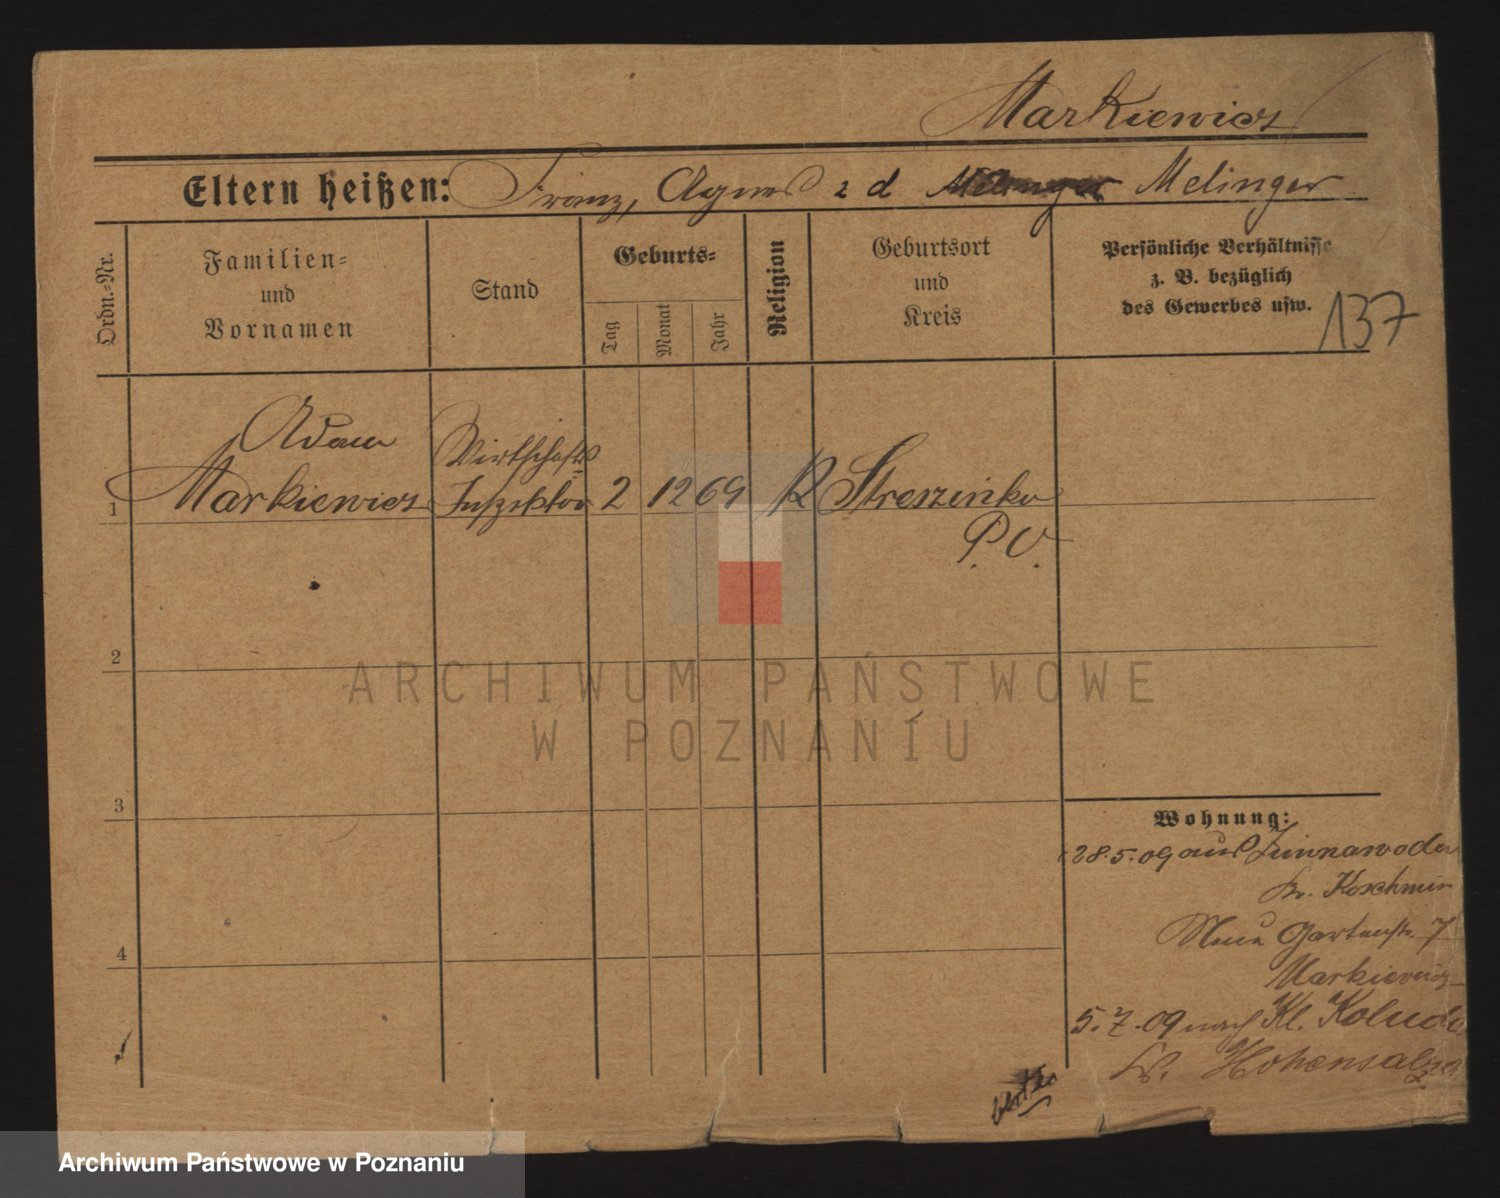 Markiewicz
Eltern heißen: Franz, Agnes z d Melinger Melinger
Ordn.-Nr.
Familien-
und
Vornamen
Stand
Geburts-
Tag
Monat
Jahr
Religion
Geburtsort
und
Kreis
Persönliche Verhältnisse
z. B. bezüglich
des Gewerbes usw.
137
Adam
Wirtschafts
1 Markiewicz Inspektor 2 12 69 K Streszinko
P. O.
2
ARCHIWUM PAŃSTWOWE
W POZNANIU
3
Wohnung:
28.5.09 aus Zimnawoda
Kr. Koschmin
Neue Gartenstr. 7
4
Markiewicz
5.7.09 nach Kl. Koluda
Kr. Hohensalza
Archiwum Państwowe w Poznaniu